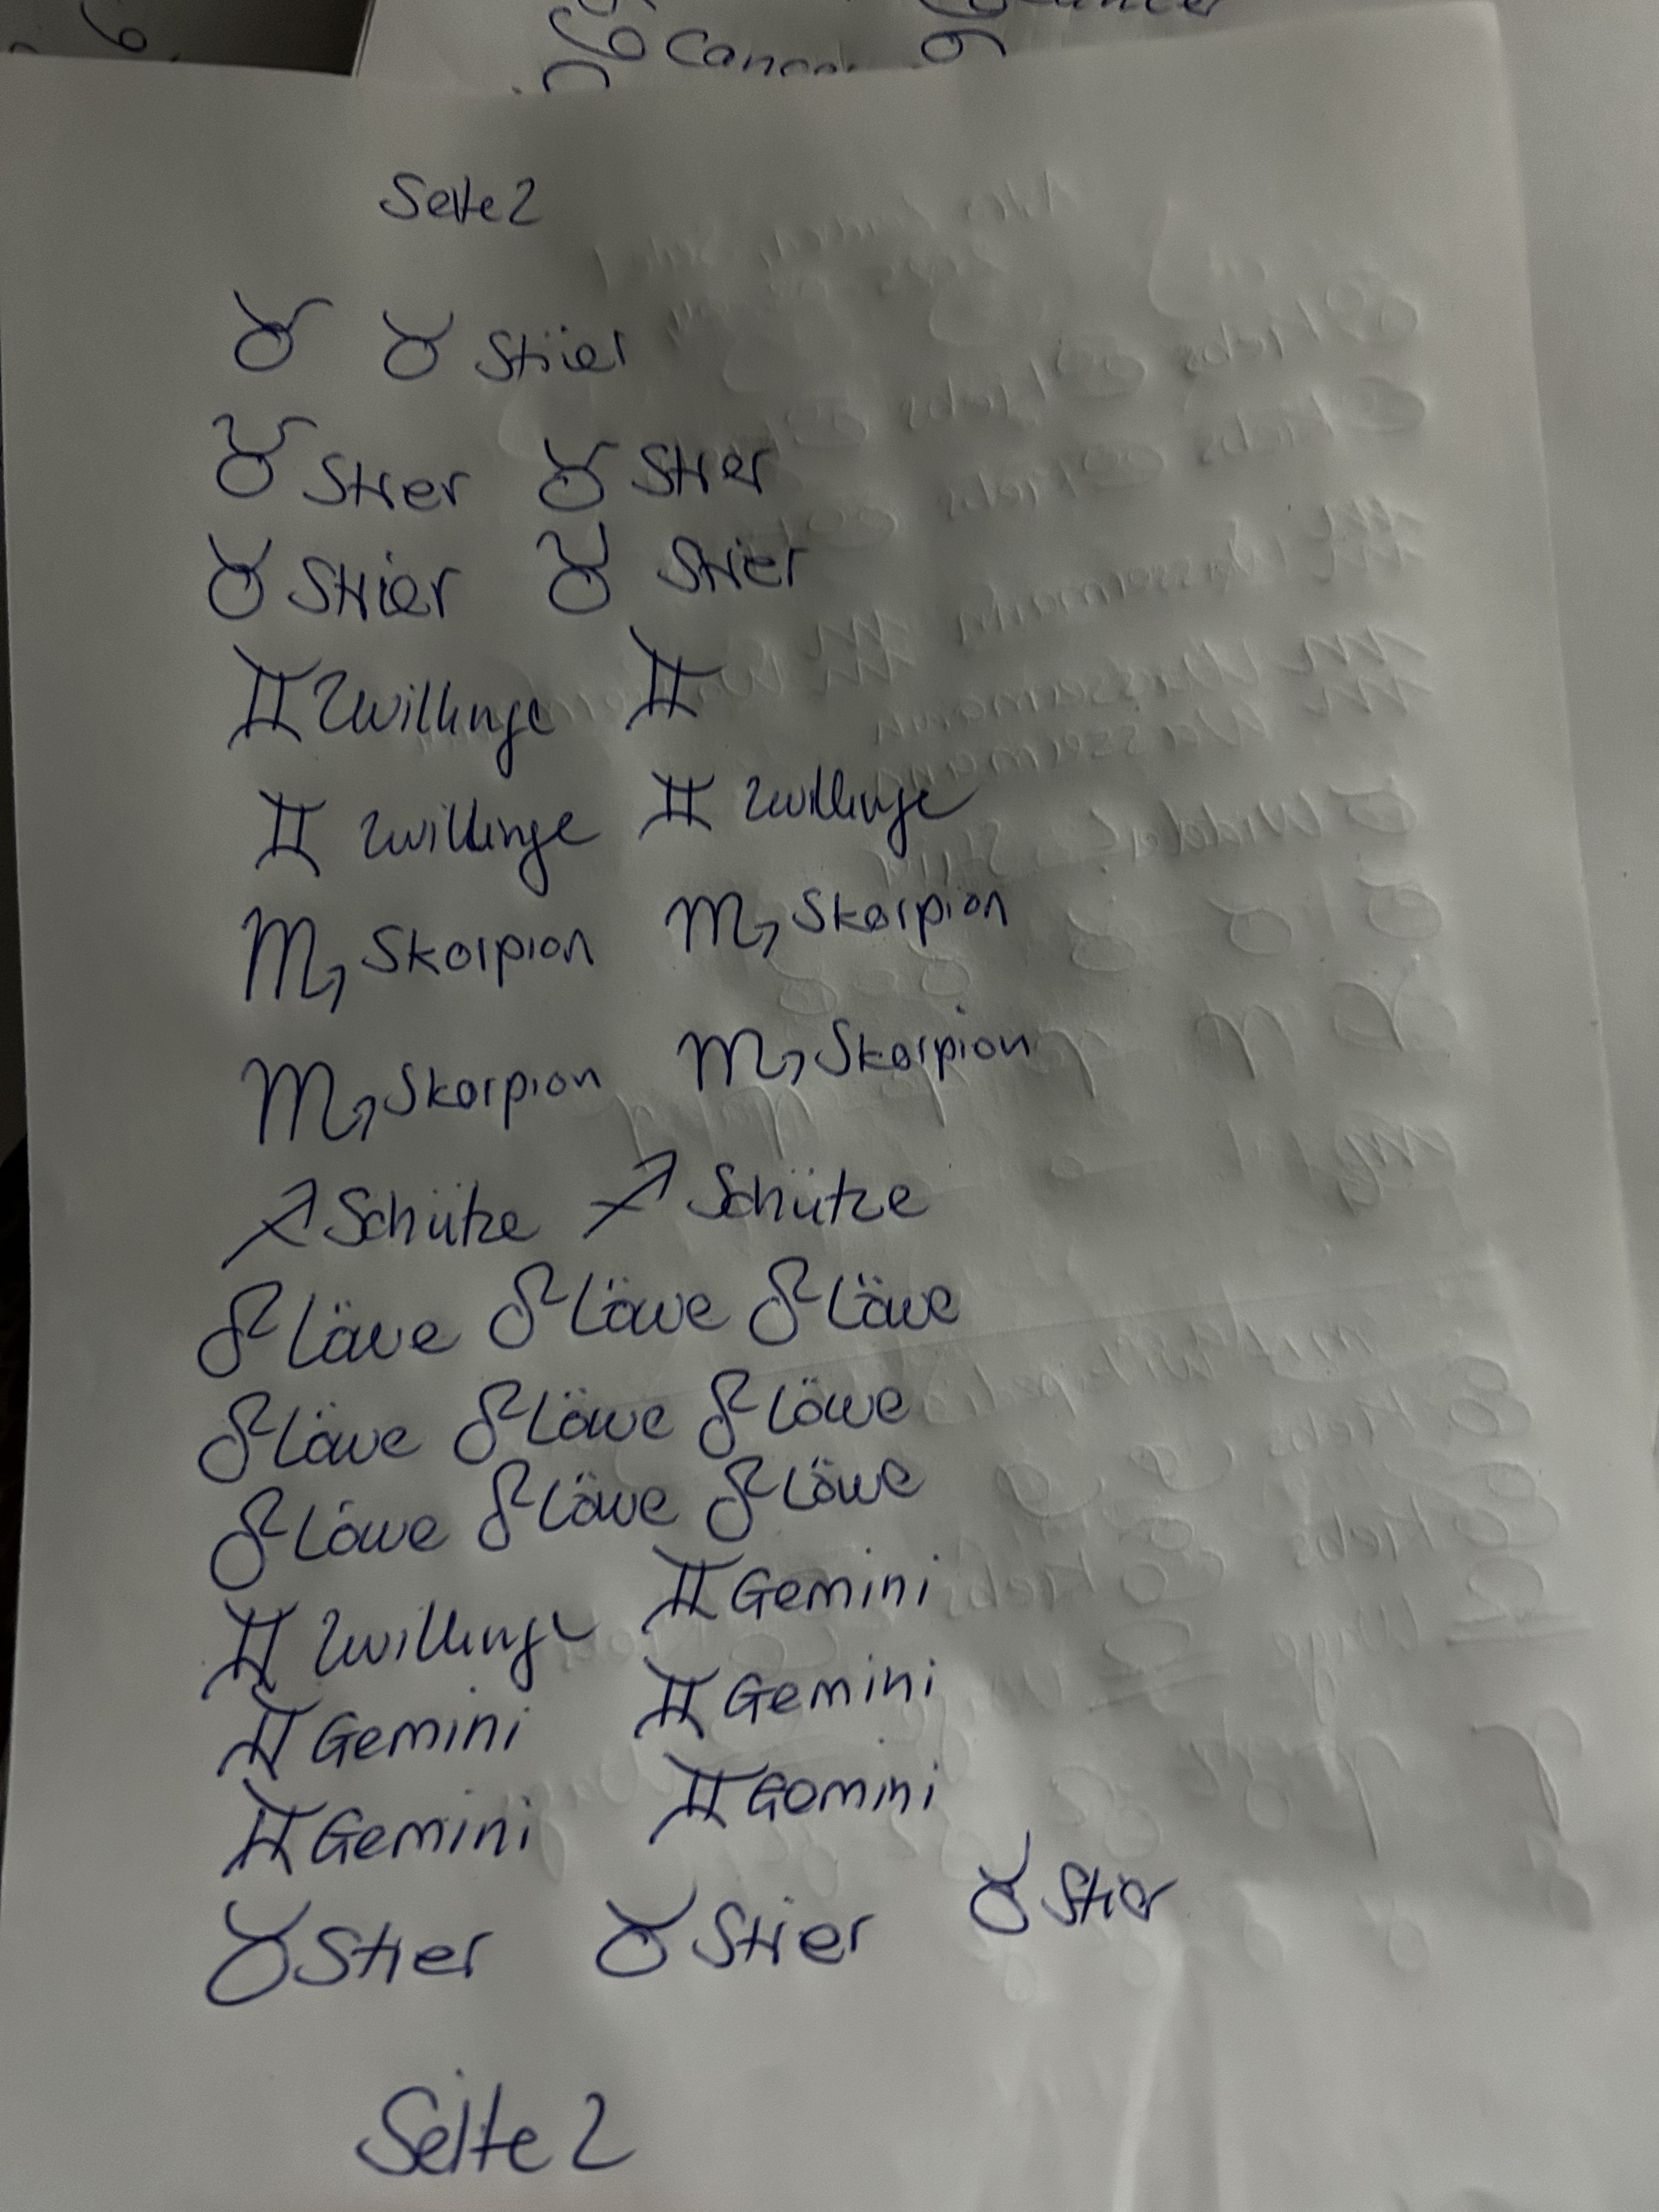 Seite 2
♉ ♉ Stier
♉ Stier ♉ Stier
♉ Stier ♉ Stier
♊ Zwillinge ♊
♊ Zwillinge ♊ Zwillinge
♏ Skorpion ♏ Skorpion
♏ Skorpion ♏ Skorpion
♐ Schütze ♐ Schütze
♌ Löwe ♌ Löwe ♌ Löwe
♌ Löwe ♌ Löwe ♌ Löwe
♌ Löwe ♌ Löwe ♌ Löwe
♊ Zwillinge ♊ Gemini
♊ Gemini ♊ Gemini
♊ Gemini ♊ Gemini
♉ Stier ♉ Stier ♉ Stier
Seite 2